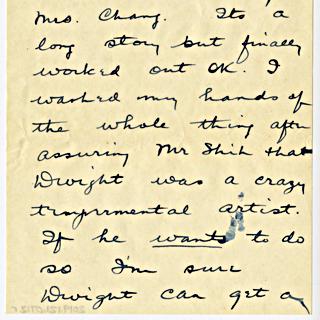 Mrs. Chang. Its a
long story but finally
worked out OK. I
washed my hands of
the whole thing after
assuring Mr Shih that
Dwight was a crazy
temprmental artist.
If he wants to do
so I'm sure
Dwight can get a